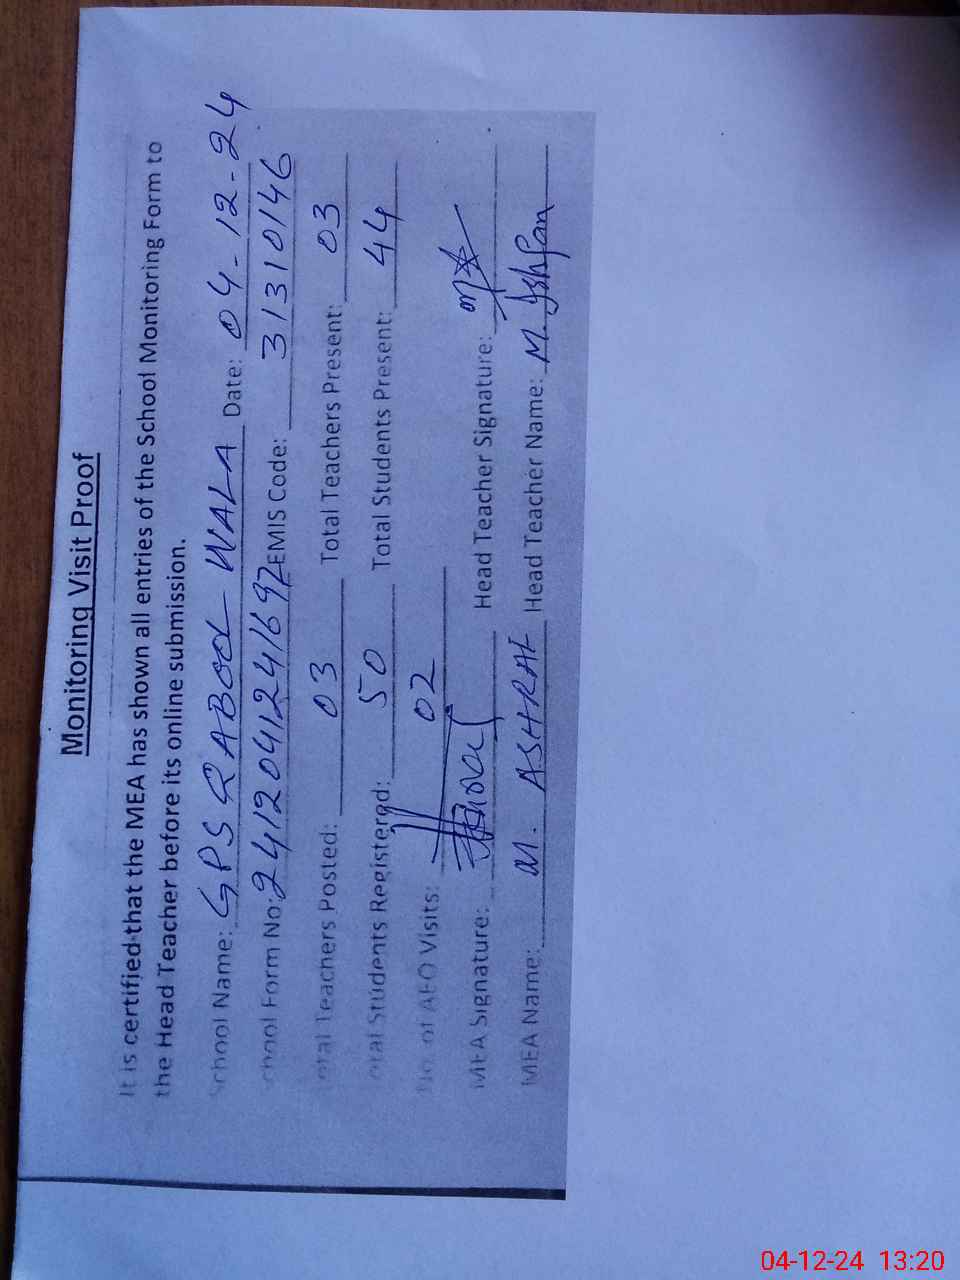 Monitoring Visit Proof
It is certified that the MEA has shown all entries of the School Monitoring Form to
the Head Teacher before its online submission.
School Name: GPS RABOOL WALA Date: 04-12-24
School Form No: 241204124169 EMIS Code: 31310146
Total Teachers Posted: 03 Total Teachers Present: 03
Total Students Registered: 50 Total Students Present: 44
No. of AEO Visits: 02
MEA Signature: Head Teacher Signature:
MEA Name: M. ASHRAF Head Teacher Name: M. Ishfan
04-12-24 13:20